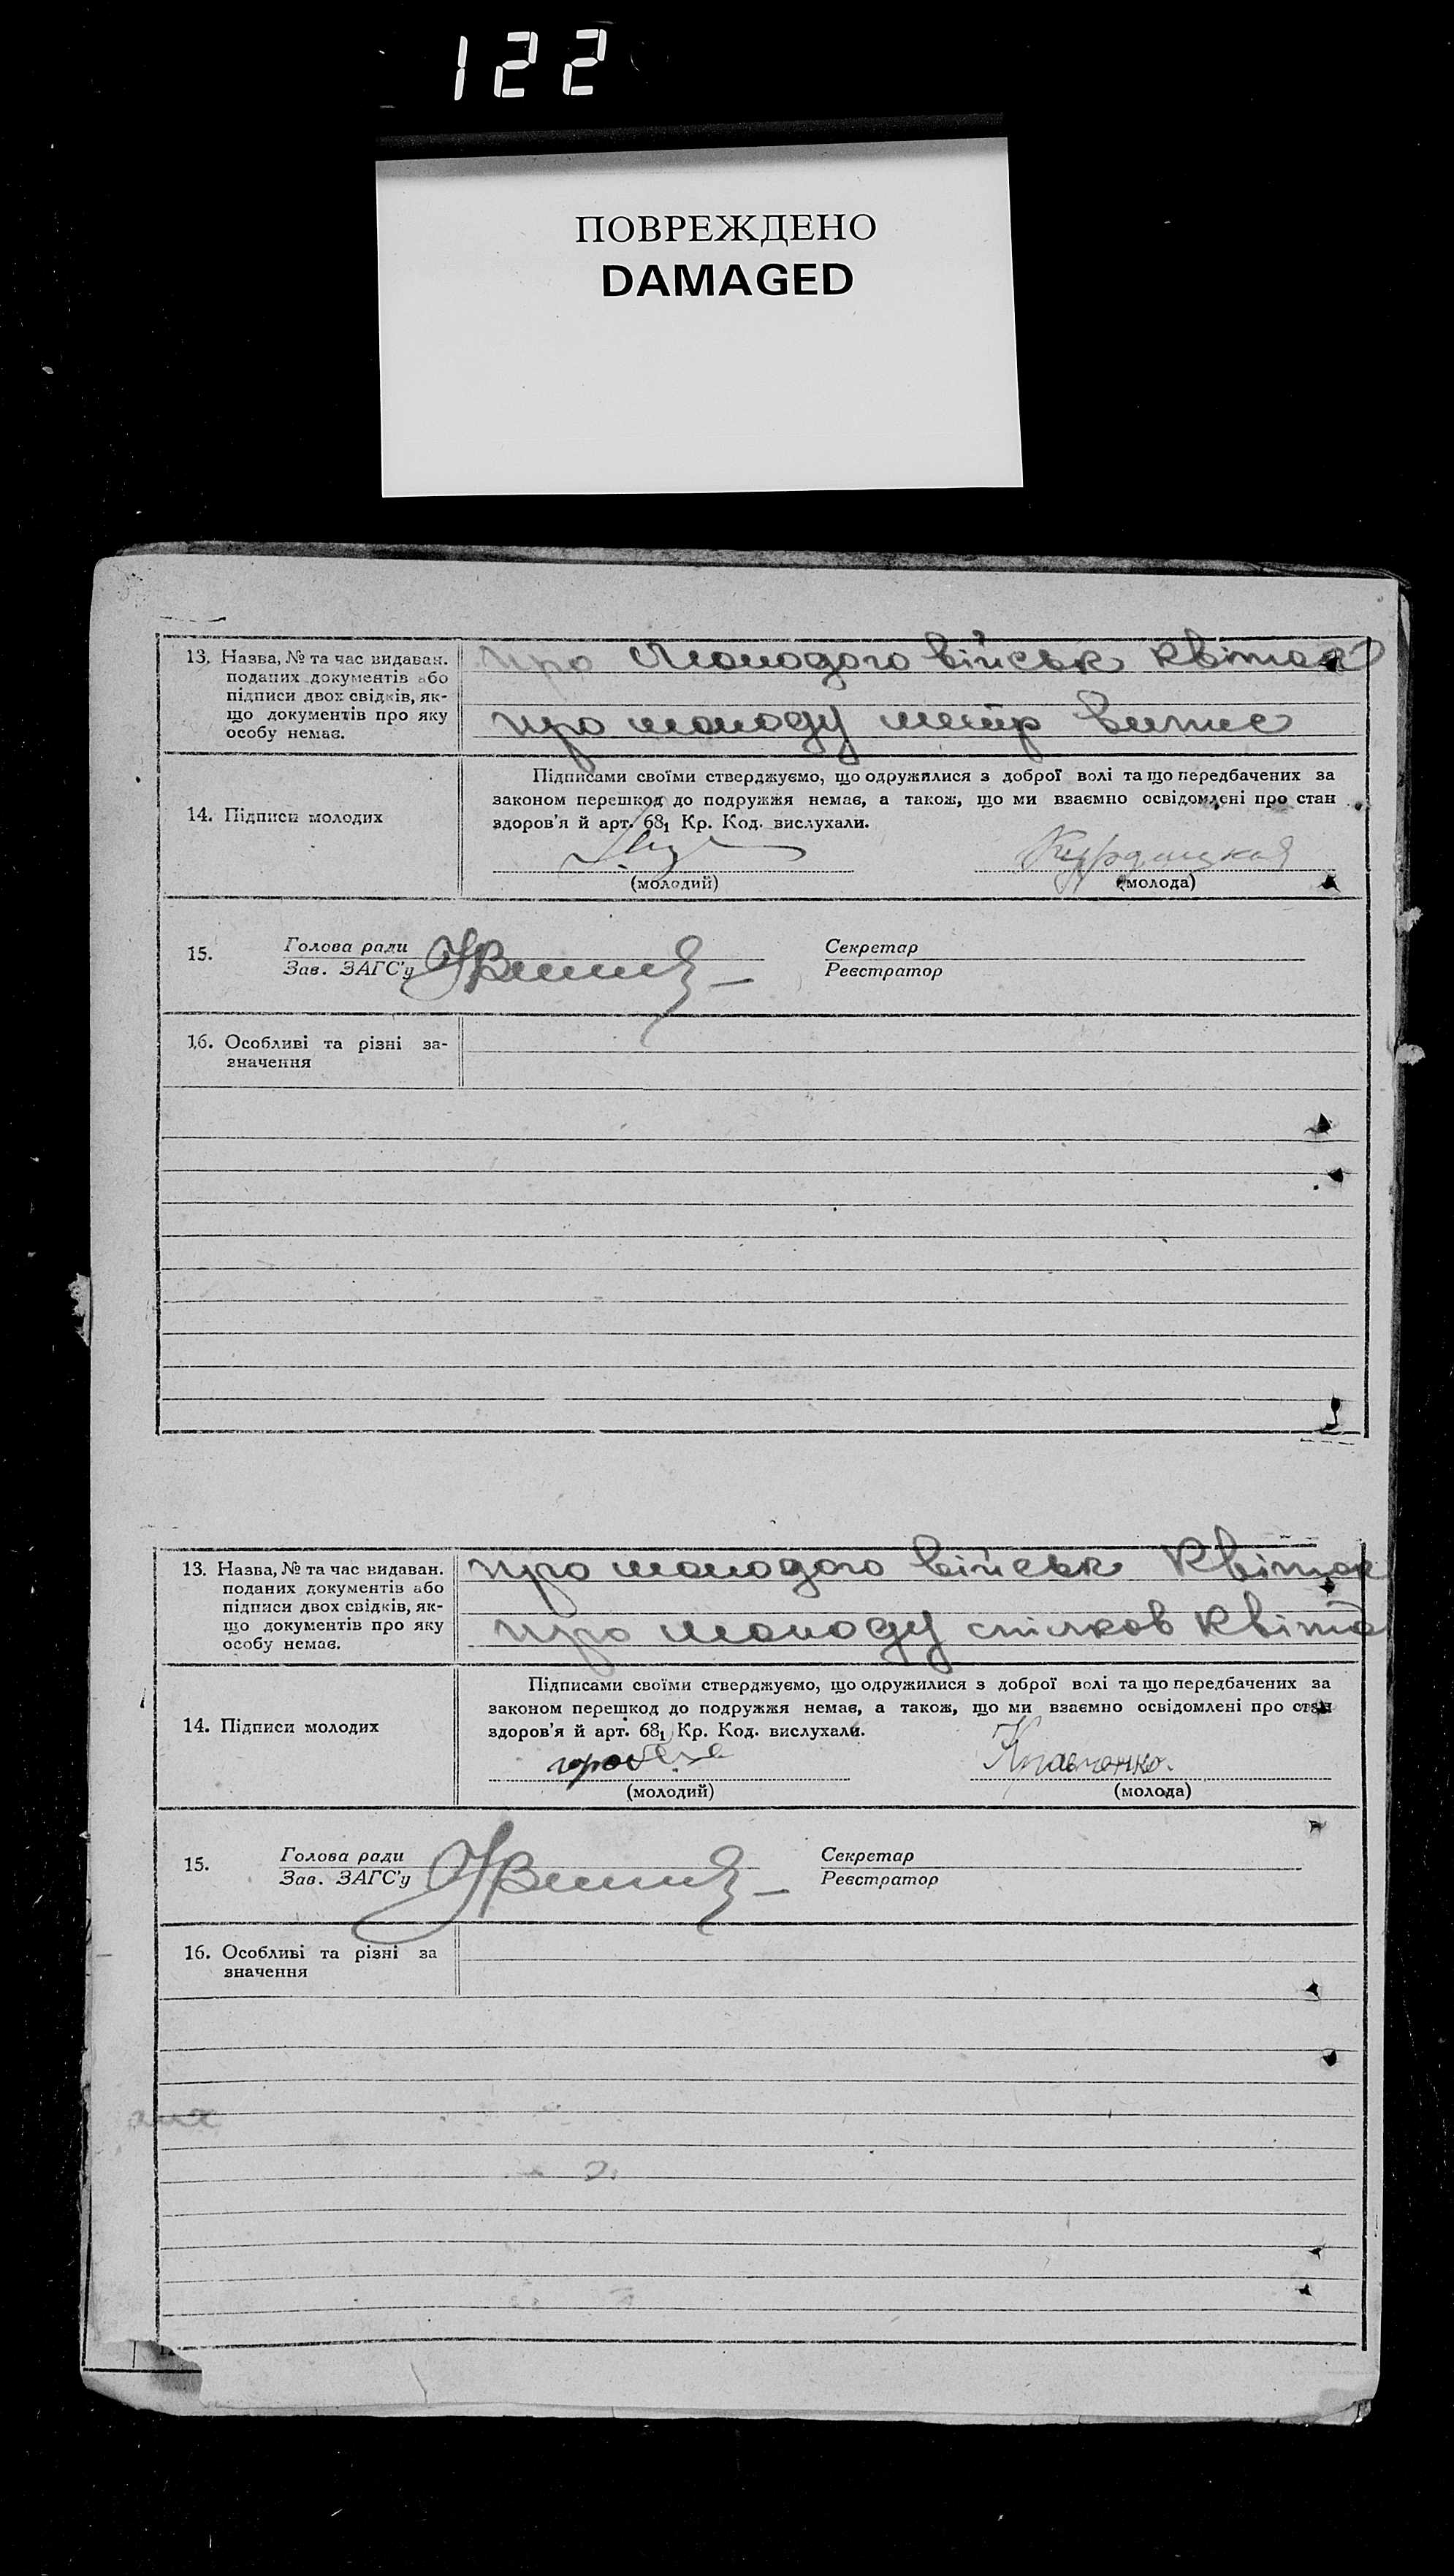 122
ПОВРЕЖДЕНО
DAMAGED
13. Назва, № та час видаван.
поданих документів або
підписи двох свідків, як-
що документів про яку
особу немає.
про Молодого військ квиток
про молоду метр витяг
14. Підписи молодих
Підписами своїми стверджуємо, що одружилися з доброї волі та що передбачених за
законом перешкод до подружжя немає, а також, що ми взаємно освідомлені про стан
здоров'я й арт. 68₁ Кр. Код. вислухали.
(молодий)
(молода)
15.
Голова ради
Зав. ЗАГС'у
Секретар
Реєстратор
16. Особливі та різні за-
значення
13. Назва, № та час видаван.
поданих документів або
підписи двох свідків, як-
що документів про яку
особу немає.
про молодого військ квіток
про молоду спілков квіто
14. Підписи молодих
Підписами своїми стверджуємо, що одружилися з доброї волі та що передбачених за
законом перешкод до подружжя немає, а також, що ми взаємно освідомлені про стан
здоров'я й арт. 68₁ Кр. Код. вислухали.
Кравченко.
(молодий)
(молода)
15.
Голова ради
Зав. ЗАГС'у
Секретар
Реєстратор
16. Особливі та різні за
значення